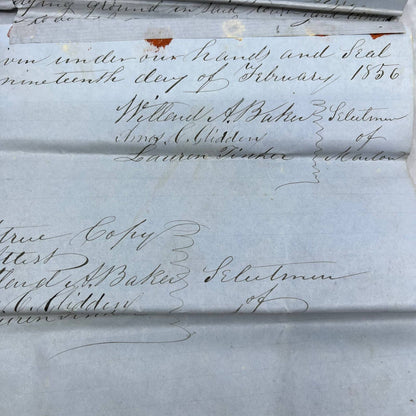 lying ground in said
iven under our hands and Seal
nineteenth day of February 1856
Willend A. Baker Selectmen
Amos C. Glidden of
Lauren Tinker Marlow
true Copy
ttest
lend A. Baker Selectmen
C. Glidden of